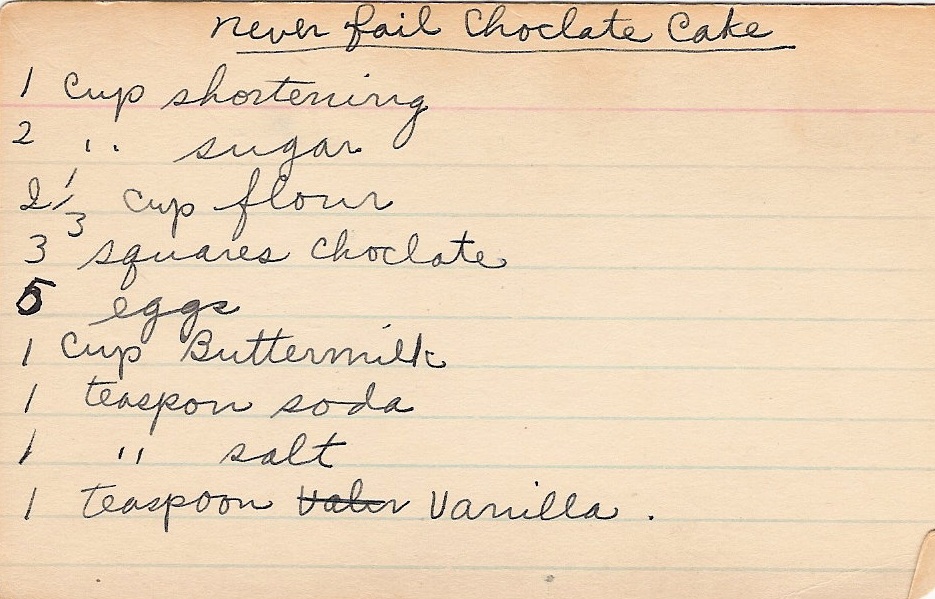 never fail Choclate Cake
1 Cup shortening
2 " sugar
2 1/3 cup flour
3 squares Choclate
5 eggs
1 Cup Buttermilk
1 teaspon soda
1 " salt
1 teaspoon Vanilla .